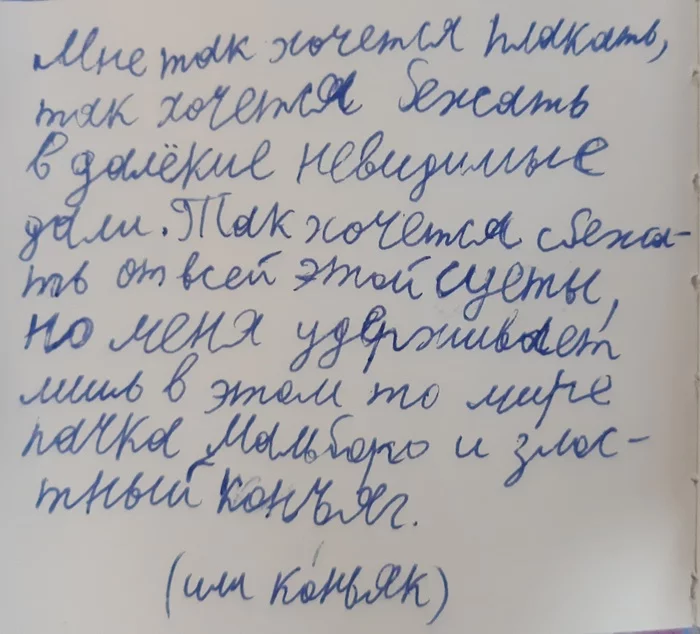 Мне так хочется плакать,
так хочется бежать
в далёкие невидимые
дали. Так хочется сбежа-
ть от всей этой суеты,
но меня удерживает
лишь в этом то мире
пачка Мальборо и злос-
тный конъяг.
(или коньяк)